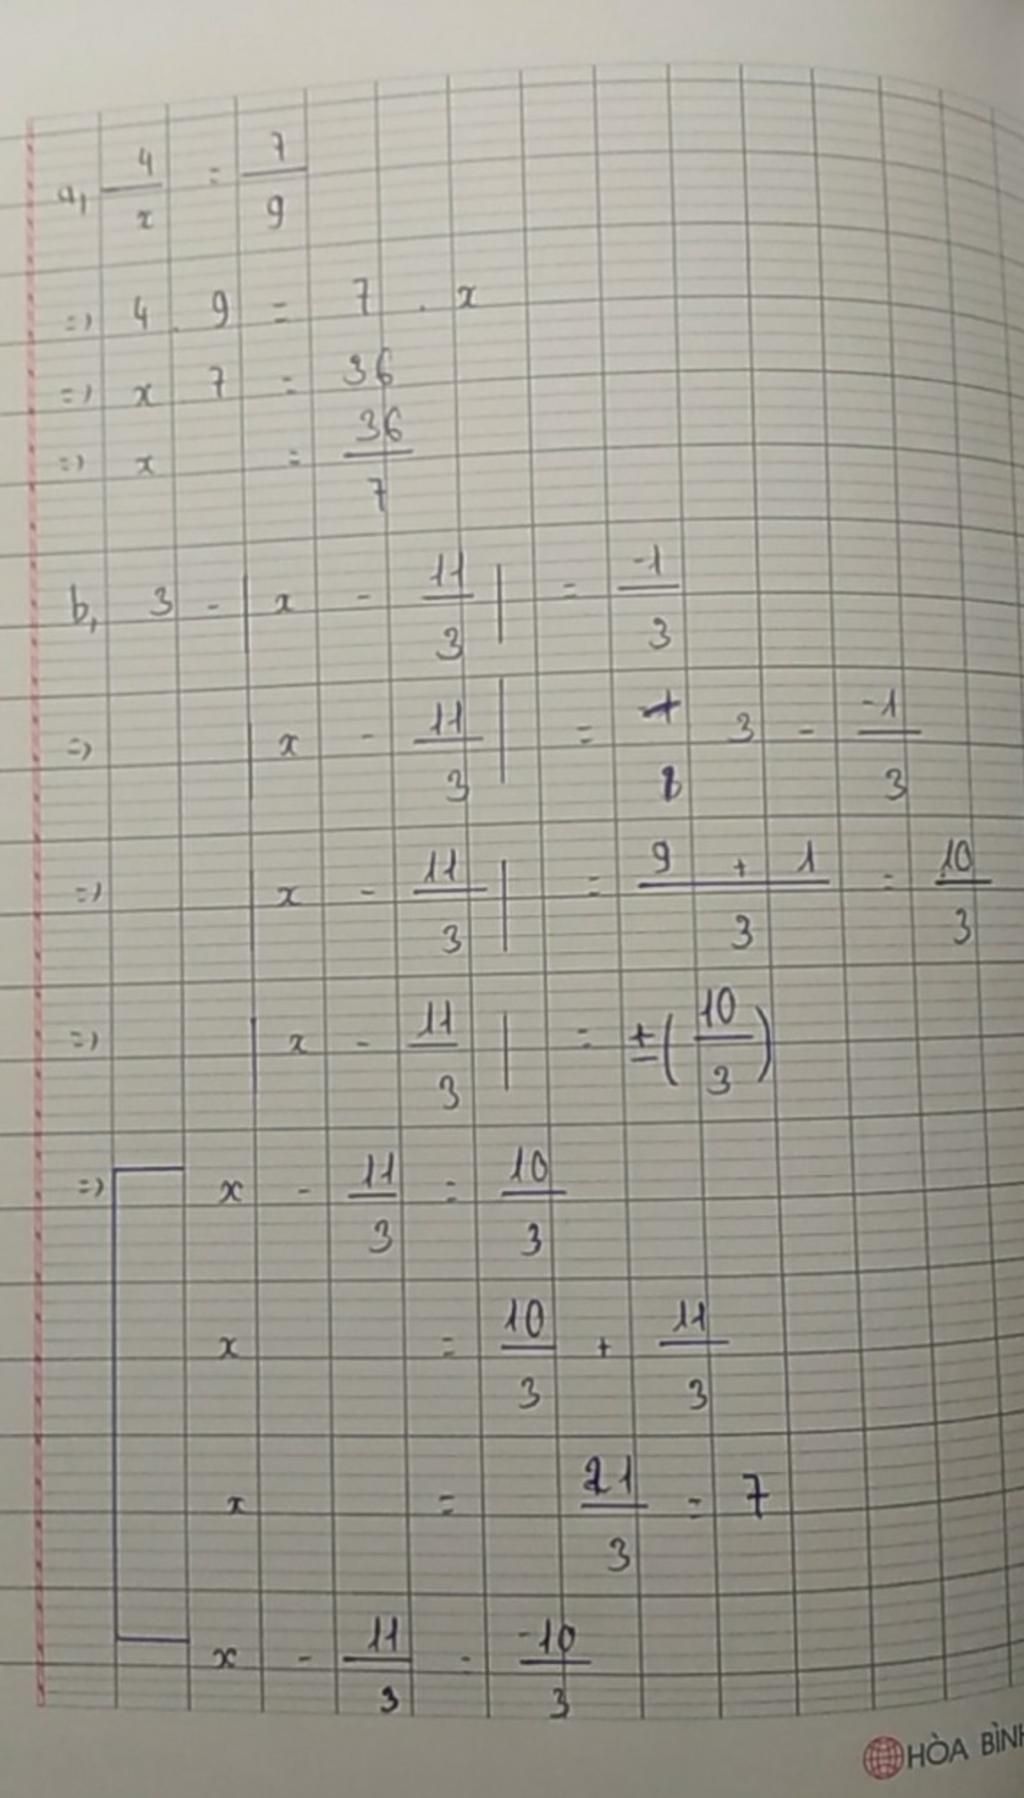 a, 4/x = 7/9
=> 4 . 9 = 7 . x
=> x 7 = 36
=> x = 36/7
b, 3 - | x - 11/3 | = -1/3
=> | x - 11/3 | = 3 - -1/3
=> | x - 11/3 | = 9 + 1/3 = 10/3
=> | x - 11/3 | = ± ( 10/3 )
=> [ x - 11/3 = 10/3
x = 10/3 + 11/3
x = 21/3 = 7
x - 11/3 = -10/3
HÒA BÌNH